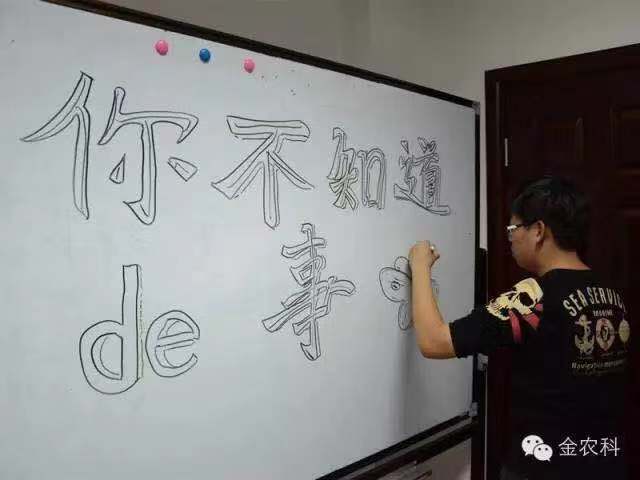 你不知道
de 事
SEA SERVICE
金农科